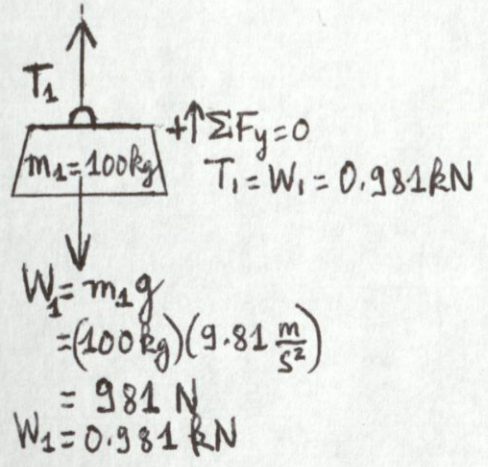 T₁
+↑ΣFy=0
m₁=100kg
T₁=W₁=0.981kN
W₁=m₁g
=(100kg)(9.81 m/s²)
= 981 N
W₁=0.981 kN